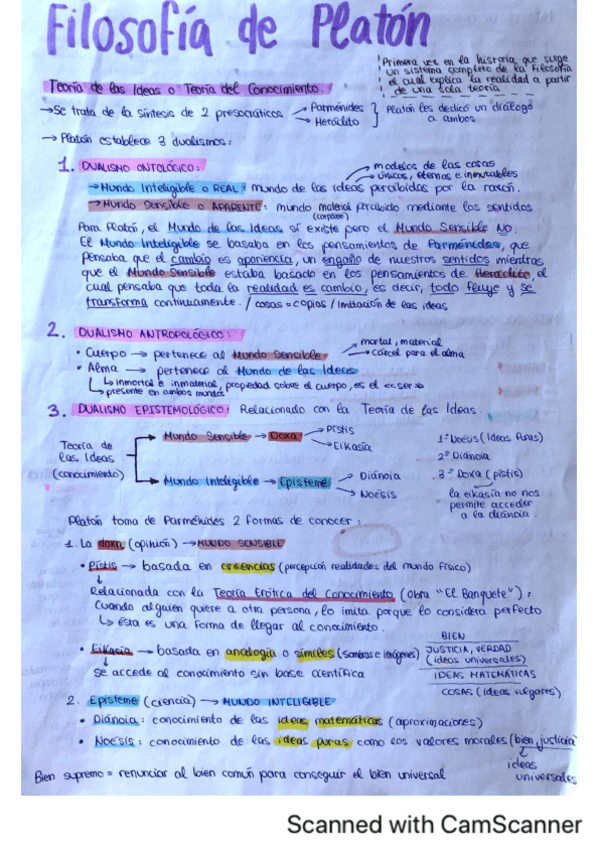 Filosofía de Platón
¡Primera vez en la historia que surge
un sistema completo de la Filosofía
el cual explica la realidad a partir
de una sola teoría
Teoría de las Ideas o Teoría del Conocimiento.
→ Se trata de la síntesis de 2 presocráticos → Parménides
→ Heráclito
} Platón les dedicó un diálogo
a ambos
→ Platón establece 3 dualismos:
1. DUALISMO ONTOLÓGICO:
→ modelos de las cosas
→ únicas, eternas e inmutables
→ Mundo Inteligible o REAL: mundo de las ideas percibidas por la razón.
→ Mundo Sensible o APARENTE: mundo material percibido mediante los sentidos
(corpóreo)
Para Platón, el Mundo de las Ideas sí existe pero el Mundo Sensible NO.
El Mundo Inteligible se basaba en los pensamientos de Parménides, que
pensaba que el cambio es apariencia, un engaño de nuestros sentidos mientras
que el Mundo Sensible estaba basado en los pensamientos de Heráclito, el
cual pensaba que toda la realidad es cambio, es decir, todo fluye y se
transforma continuamente. / cosas = copias / imitación de las ideas
2. DUALISMO ANTROPOLÓGICO:
• Cuerpo → pertenece al Mundo Sensible
→ mortal, material
→ cárcel para el alma
• Alma → pertenece al Mundo de las Ideas
↳ inmortal e inmaterial, propiedad sobre el cuerpo, es el <<ser>>
↳ presente en ambos mundos
3. DUALISMO EPISTEMOLÓGICO: Relacionado con la Teoría de las Ideas
Teoría de
las Ideas
(conocimiento)
→ Mundo Sensible → Doxa → Pístis
→ Eikasía
→ Mundo Inteligible → Episteme → Diánoia
→ Noésis
1º Noésis (Ideas Puras)
2º Diánoia
3º Doxa (pístis)
la eikasía no nos
permite acceder
a la diánoia.
Platón toma de Parménides 2 formas de conocer:
1. La doxa (opinión) → MUNDO SENSIBLE
• Pístis → basada en creencias (percepción realidades del mundo físico)
↓
Relacionada con la Teoría Erótica del Conocimiento (obra "El Banquete"):
Cuando alguien quiere a otra persona, lo imita porque lo considera perfecto
↳ ésta es una forma de llegar al conocimiento.
• Eikasía → basada en analogía o símiles (sombras e imágenes)
↓
Se accede al conocimiento sin base científica
BIEN
JUSTICIA, VERDAD
(ideas universales)
IDEAS MATEMÁTICAS
COSAS (ideas vulgares)
2. Episteme (ciencia) → MUNDO INTELIGIBLE
• Diánoia: conocimiento de las ideas matemáticas (aproximaciones)
• Noésis: conocimiento de las ideas puras como los valores morales (bien, justicia)
↓
ideas
universales
Bien supremo = renunciar al bien común para conseguir el bien universal
Scanned with CamScanner